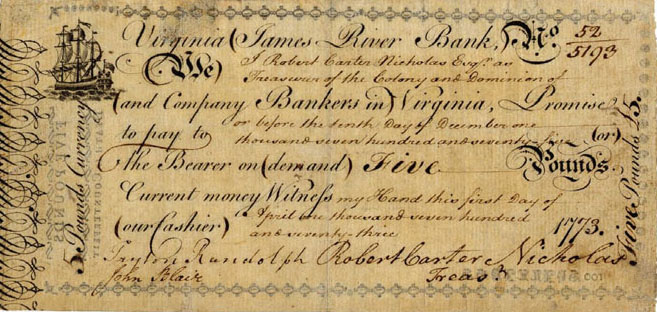 Virginia (James River Bank,) No. 52
5193
(We) I Robert Carter Nicholas Esqr. as
Treasurer of the Colony and Dominion of
(and Company Bankers in) Virginia, Promise
to pay to or before the tenth Day of December one
thousand seven hundred and seventy five (or)
the Bearer on (demand) Five Pounds
Current money Witness my Hand this first Day of
(our Cashier) April one thousand seven hundred
and seventy-three 1773.
Peyton Randolph Robert Carter Nicholas
John Blair Treasr.
5 Pounds Currency
FIVE POUNDS
Five Pounds £5.